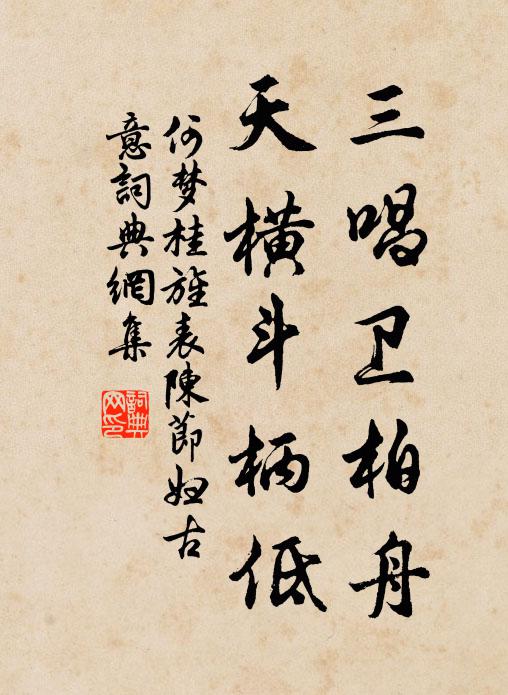 三唱卫柏舟
天横斗柄低
何梦桂旌表陳節婦古
意詞典網集
詞典网印